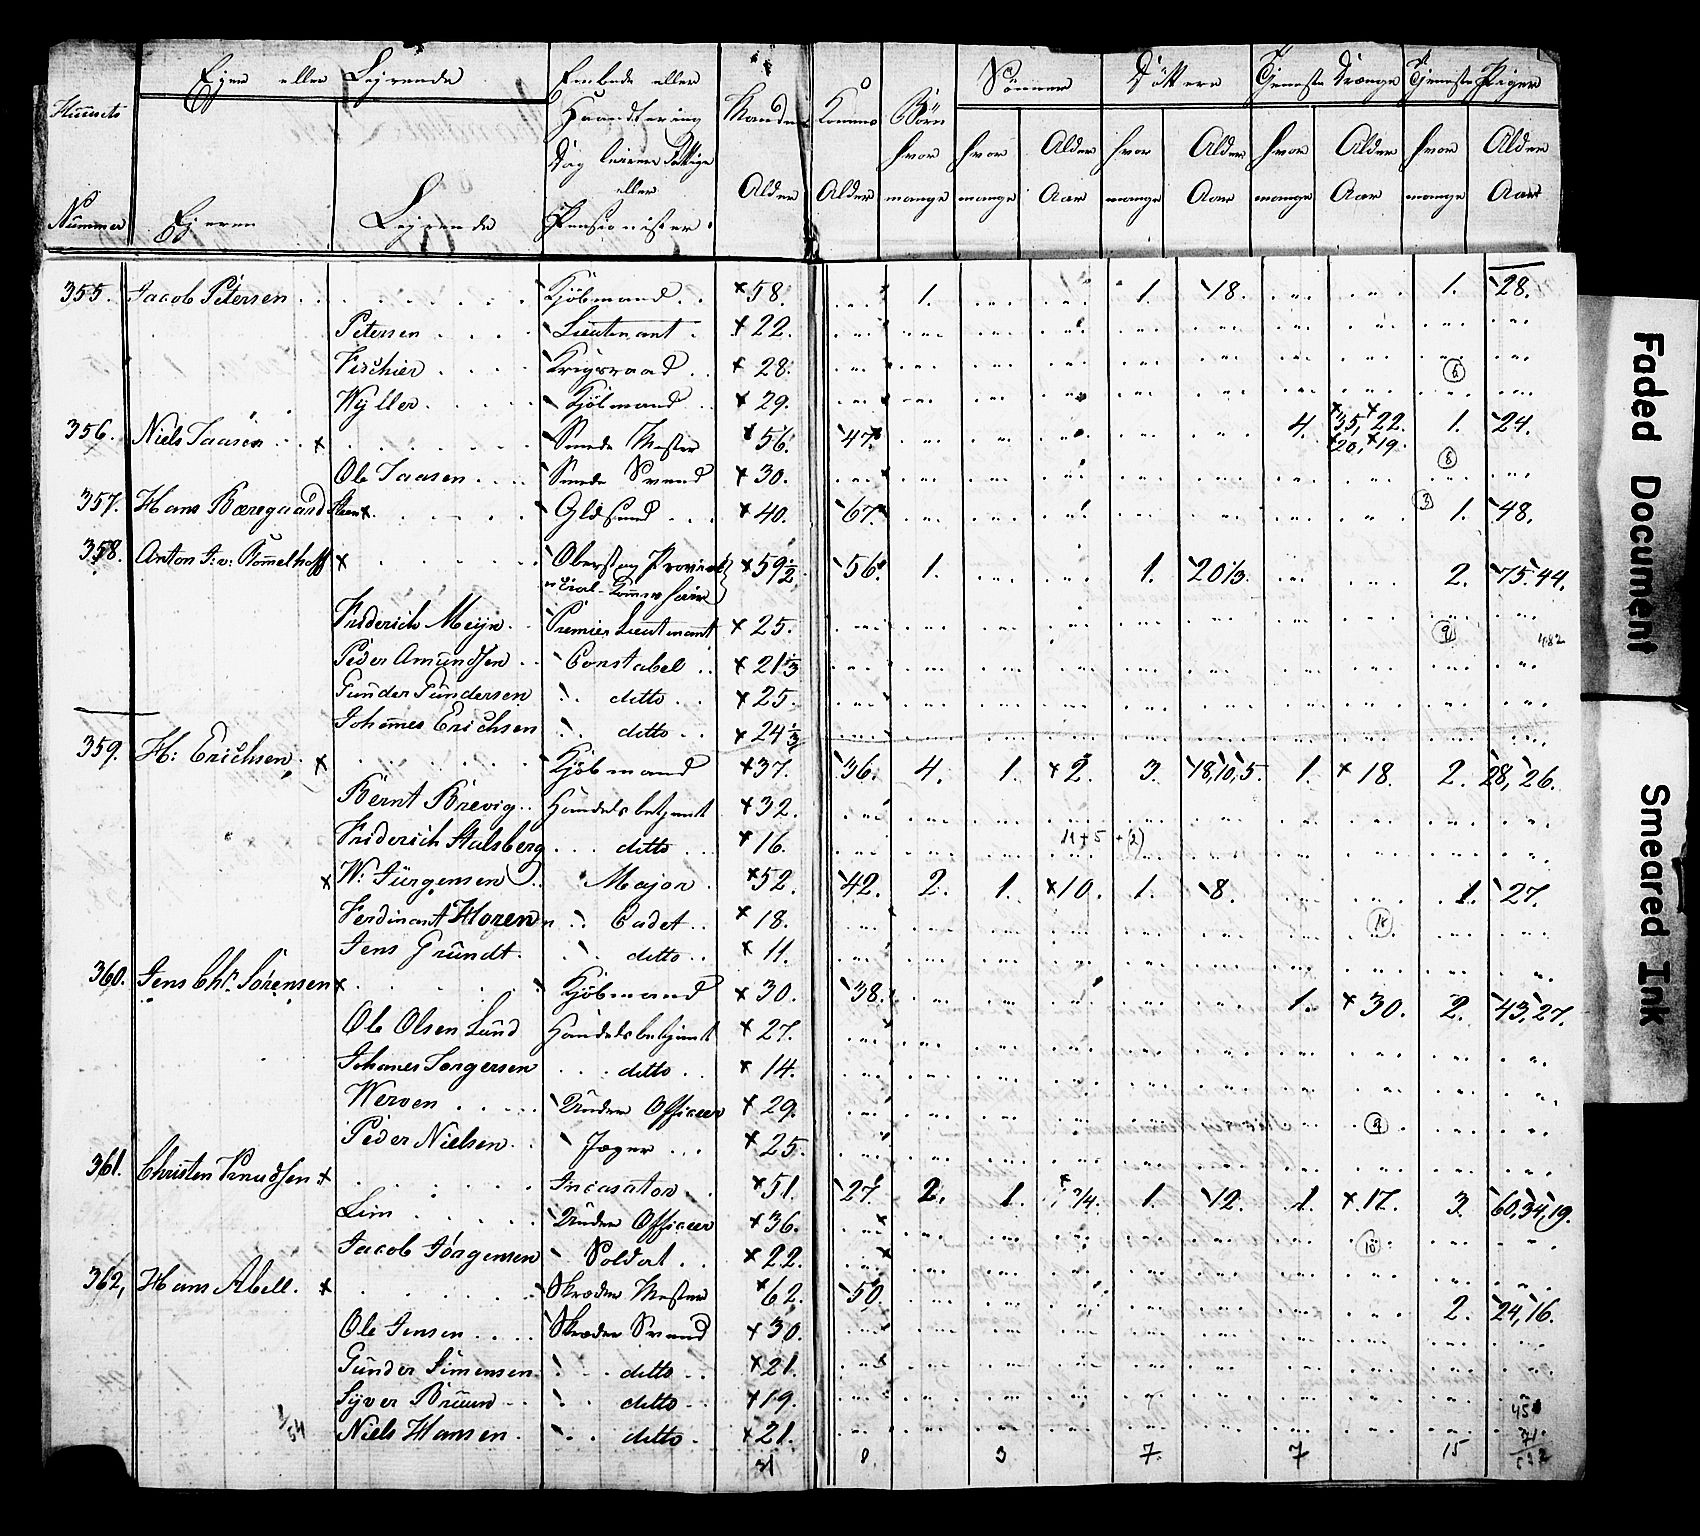 Huusets Nummer | Ejer eller Lejrende | Embede eller Haandtering Daglønner Fattige eller Pensionister | Mandens Alder | Konens Alder | Børn hvor mange | Sønner | Döttere | Tjeneste Drænge | Tjeneste Piger
Ejeren | Lejrende | hvor mange | Alder Aar | hvor mange | Alder Aar | hvor mange | Alder Aar | hvor mange | Alder Aar
355. Jacob Petersen Kjöbmand 58. 1. 1. 18. 1. 28.
Petersen Lieutnant 22.
Fischier Krigsraad 28.
Wyller Kjöbmand 29.
6
356. Niels Saasen x Smede Mester 56. 47. 4. 35, 22. 1. 24.
20, 19.
Ole Saasen Smede Svend 30.
8
357. Hans Boregaard Steen x 40. 67. 1. 48.
3
358. Anton J: v: Rømmelhoff x Oberst og Provin- 59½ 56. 1. 1. 20⅓. 2. 75. 44.
cial-Kommissair
Friderich Meijn Premier Lieutnant 25.
9 482
Peder Amundsen Constabel 21⅓
Gunder Gundersen ditto 25.
Johannes Erichsen ditto 24⅓
359. H: Erichsen x Kjöbmand 37. 36. 4. 1. 2. 3. 18, 10, 5. 1. 18. 2. 28, 26.
Bernt Brevig Handelsbetjent 32.
Friderich Stalsberg ditto 16.
11+5+(2)
x W: Jürgensen Major 52. 42. 2. 1. 10. 1. 8. 1. 27.
Ferdinant Horenn Cadet 18.
Jens Grundt ditto 11.
360. Jens Chr. Sörensen x Kjöbmand 30. 38. 1. 30. 2. 43, 27.
Ole Olsen Lund Handelsbetjent 27.
Johannes Torgersen ditto 14.
Werven Under Officeer 29.
9
Peder Nielsen Jæger 25.
361. Christen Knudsen x Incasator 51. 27. 2. 1. ¾. 1. 12. 1. 17. 3. 60, 34, 19.
Lim Under Officeer 36.
10
Jacob Jörgensen Soldat 22.
362, Hans Abell x Skræder Mester 62. 50. 2. 24, 16.
Ole Jensen Skræder Svend 30.
Gunder Simensen ditto 21.
Syver Bruun ditto 19.
Niels Hansen ditto 21.
31 8. 3 7. 7 15
Faded Document
Smeared Ink